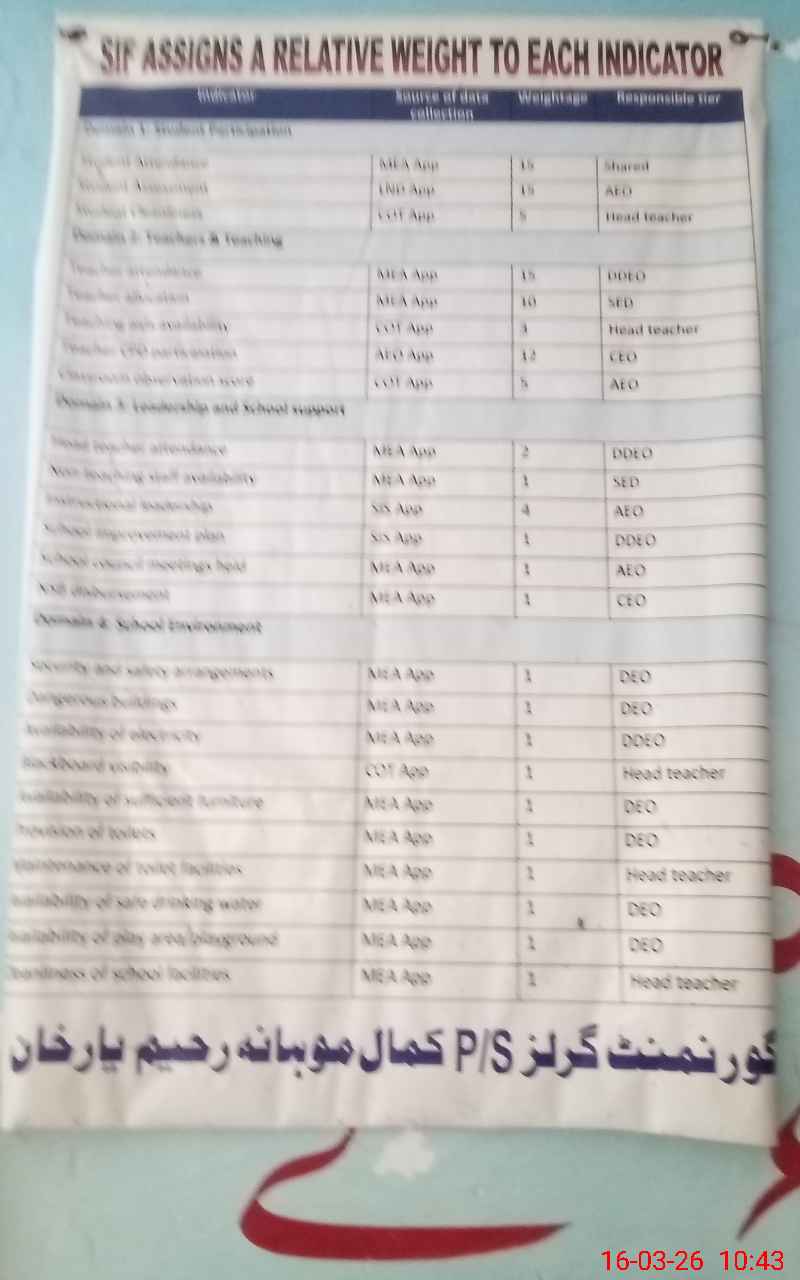 SIF ASSIGNS A RELATIVE WEIGHT TO EACH INDICATOR
Indicator Source of data collection Weightage Responsible tier
Domain 1: Student Participation
Student Attendance MEA App 15 Shared
Student Assessment LND App 15 AEO
Student COT App 5 Head teacher
Domain 2: Teachers & Teaching
Teacher attendance MEA App 15 DDEO
Teacher allocation MEA App 10 SED
Teaching aids availability COT App 3 Head teacher
Teacher CPD participation AEO App 12 CEO
Classroom observation score COT App 5 AEO
Domain 3: Leadership and School support
Head teacher attendance MEA App 2 DDEO
Non teaching staff availability MEA App 1 SED
Instructional leadership SIS App 4 AEO
School improvement plan SIS App 1 DDEO
School council meetings held MEA App 1 AEO
NSB disbursement MEA App 1 CEO
Domain 4: School Environment
Security and safety arrangements MEA App 1 DEO
Dangerous buildings MEA App 1 DEO
Availability of electricity MEA App 1 DDEO
Blackboard visibility COT App 1 Head teacher
Availability of sufficient furniture MEA App 1 DEO
Provision of toilets MEA App 1 DEO
Maintenance of toilet facilities MEA App 1 Head teacher
Availability of safe drinking water MEA App 1 DEO
Availability of play area/playground MEA App 1 DEO
Cleanliness of school facilities MEA App 1 Head teacher
گورنمنٹ گرلز P/S کمال موہانہ رحیم یارخان
16-03-26 10:43